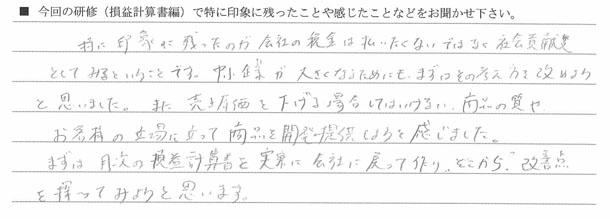 ■ 今回の研修（損益計算書編）で特に印象に残ったことや感じたことなどをお聞かせ下さい。
特に印象に残ったのが会社の税金は払いたくないではなく社会貢献度
としてみるということです。中小企業が大きくなるためにも、まずはその考え方を改めよう
と思いました。また売上原価を下げる場合してはいけない、商品の質や
お客様の立場に立って商品を開発・提供しようと感じました。
まずは月次の損益計算書を実際に会社に戻って作り、どこから、改善点
を探ってみようと思います。